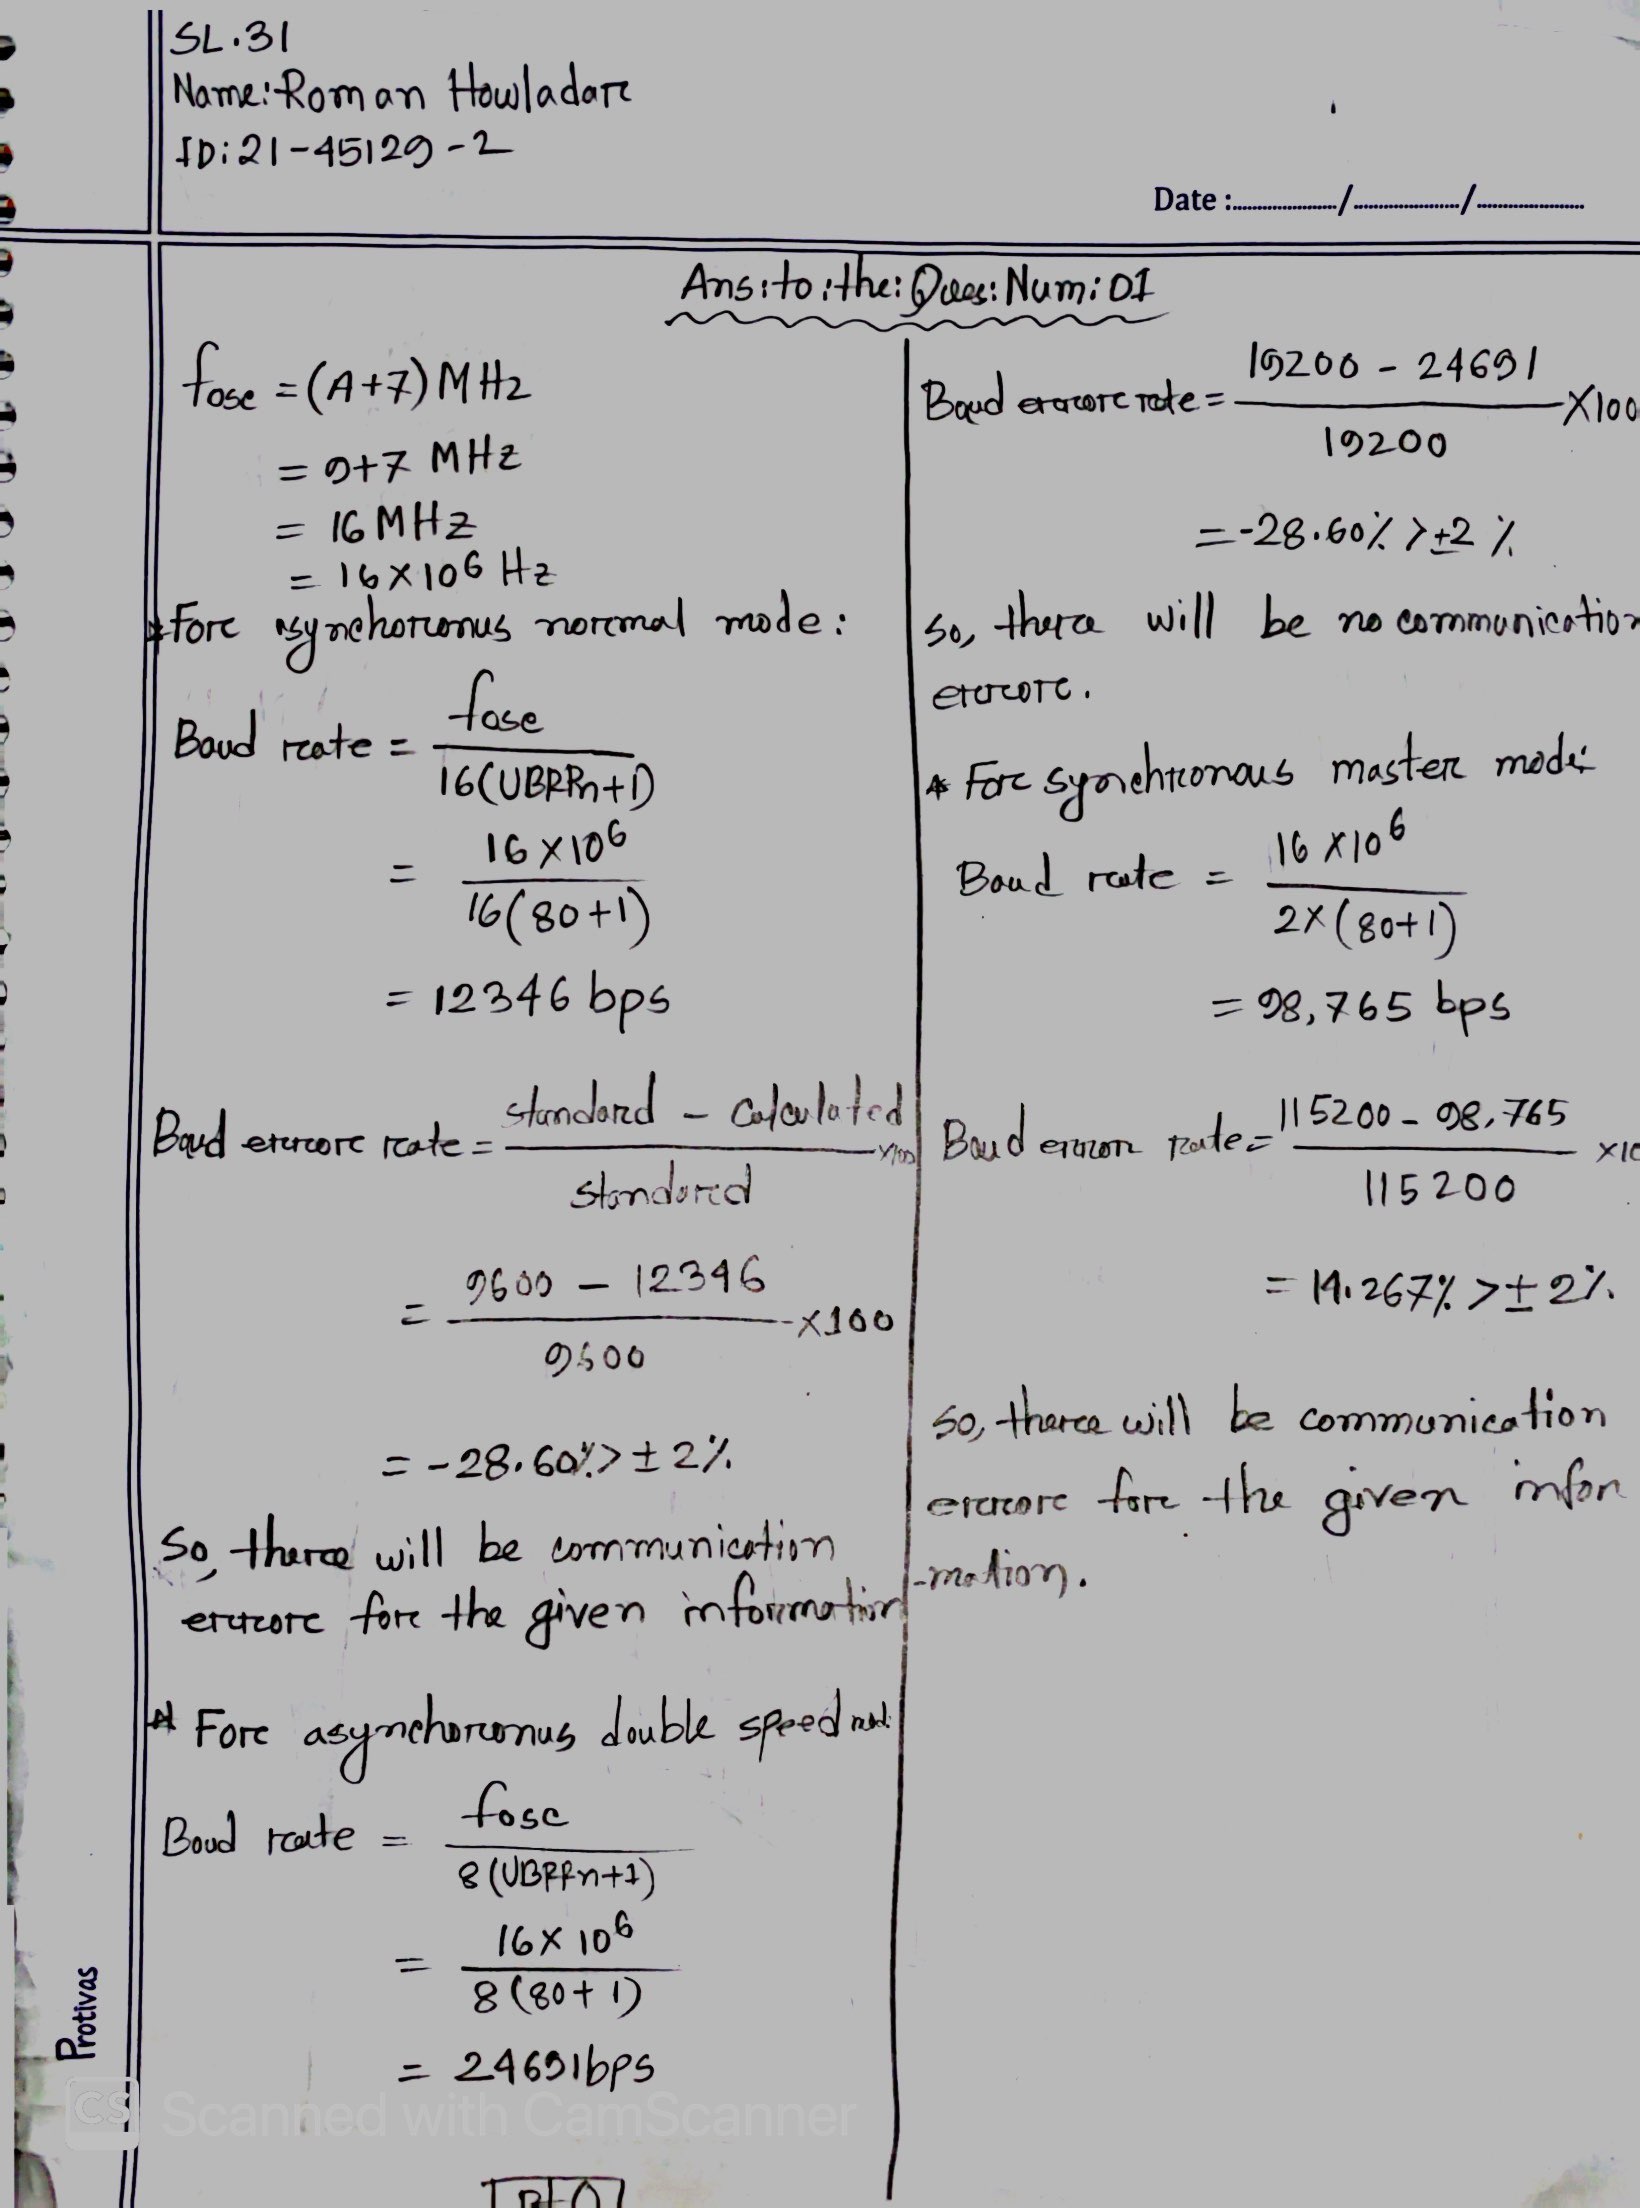 SL.31
Name: Roman Howladare
ID: 21-45129-2
Date :............/............/............
Ans: to: the: Ques: Num: 01
fosc = (A+7) MHz
= 9+7 MHz
= 16 MHz
= 16×106 Hz
* Fore asynchoronus noremal mode:
Baud reate = fosc / 16(UBRRn+1)
= 16×10^6 / 16(80+1)
= 12346 bps
Baud errore reate = standared - calculated / standared ×100
= 9600 - 12346 / 9600 ×100
= -28.60% > ±2%
So, theree will be communication
errore fore the given information
* Fore asynchoronus double speed mode
Baud reate = fosc / 8(UBRRn+1)
= 16×10^6 / 8(80+1)
= 24691bps
Baud errore rate = 19200 - 24691 / 19200 ×100
= -28.60% > ±2%
So, there will be no communication
errore.
* Fore synchronous master mode:
Baud rate = 16×10^6 / 2×(80+1)
= 98,765 bps
Baud error rate = 115200 - 98,765 / 115200 ×10
= 14.267% > ±2%
So, theree will be communication
errore fore the given infor
-mation.
Protivas
CS Scanned with CamScanner